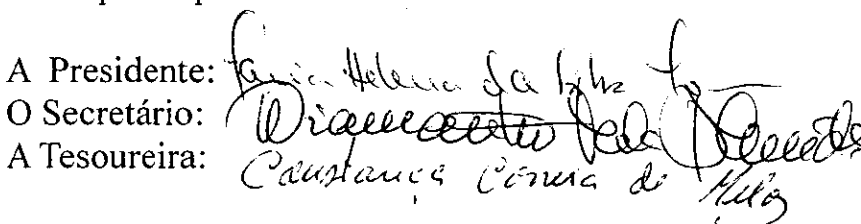 A Presidente: Helena da Silva
O Secretário: Diamantino
A Tesoureira: Constança Correia de Melo